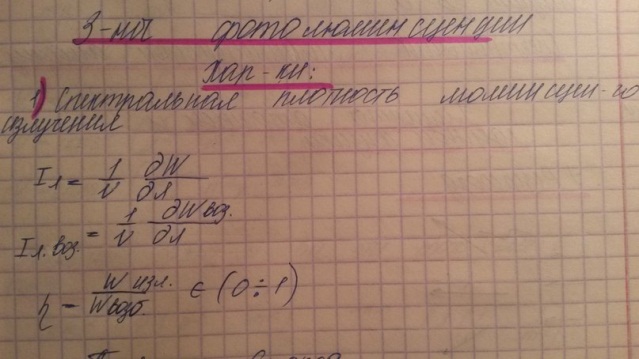 З-ны фотолюминисценции
Хар-ки:
1) Спектральная плотность люминисцен-го
излучения
Iл = 1/ν ∂W/∂λ
Iл. воз. = 1/ν ∂Wвоз./∂λ
η = W изл./W возб ∈ (0÷1)